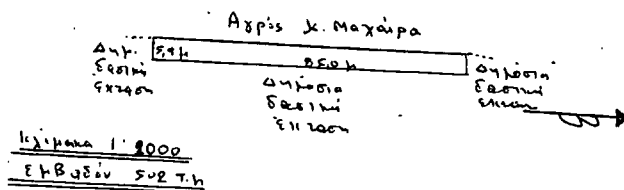 Αγρός κ. Μαχαίρα
5,9 μ
85,0 μ
Δημ.
δασική
έκταση
Δημόσια
δασική
έκταση
Δημόσια
δασική
έκταση
Κλίμακα 1: 2000
Εμβαδόν 502 τ.μ